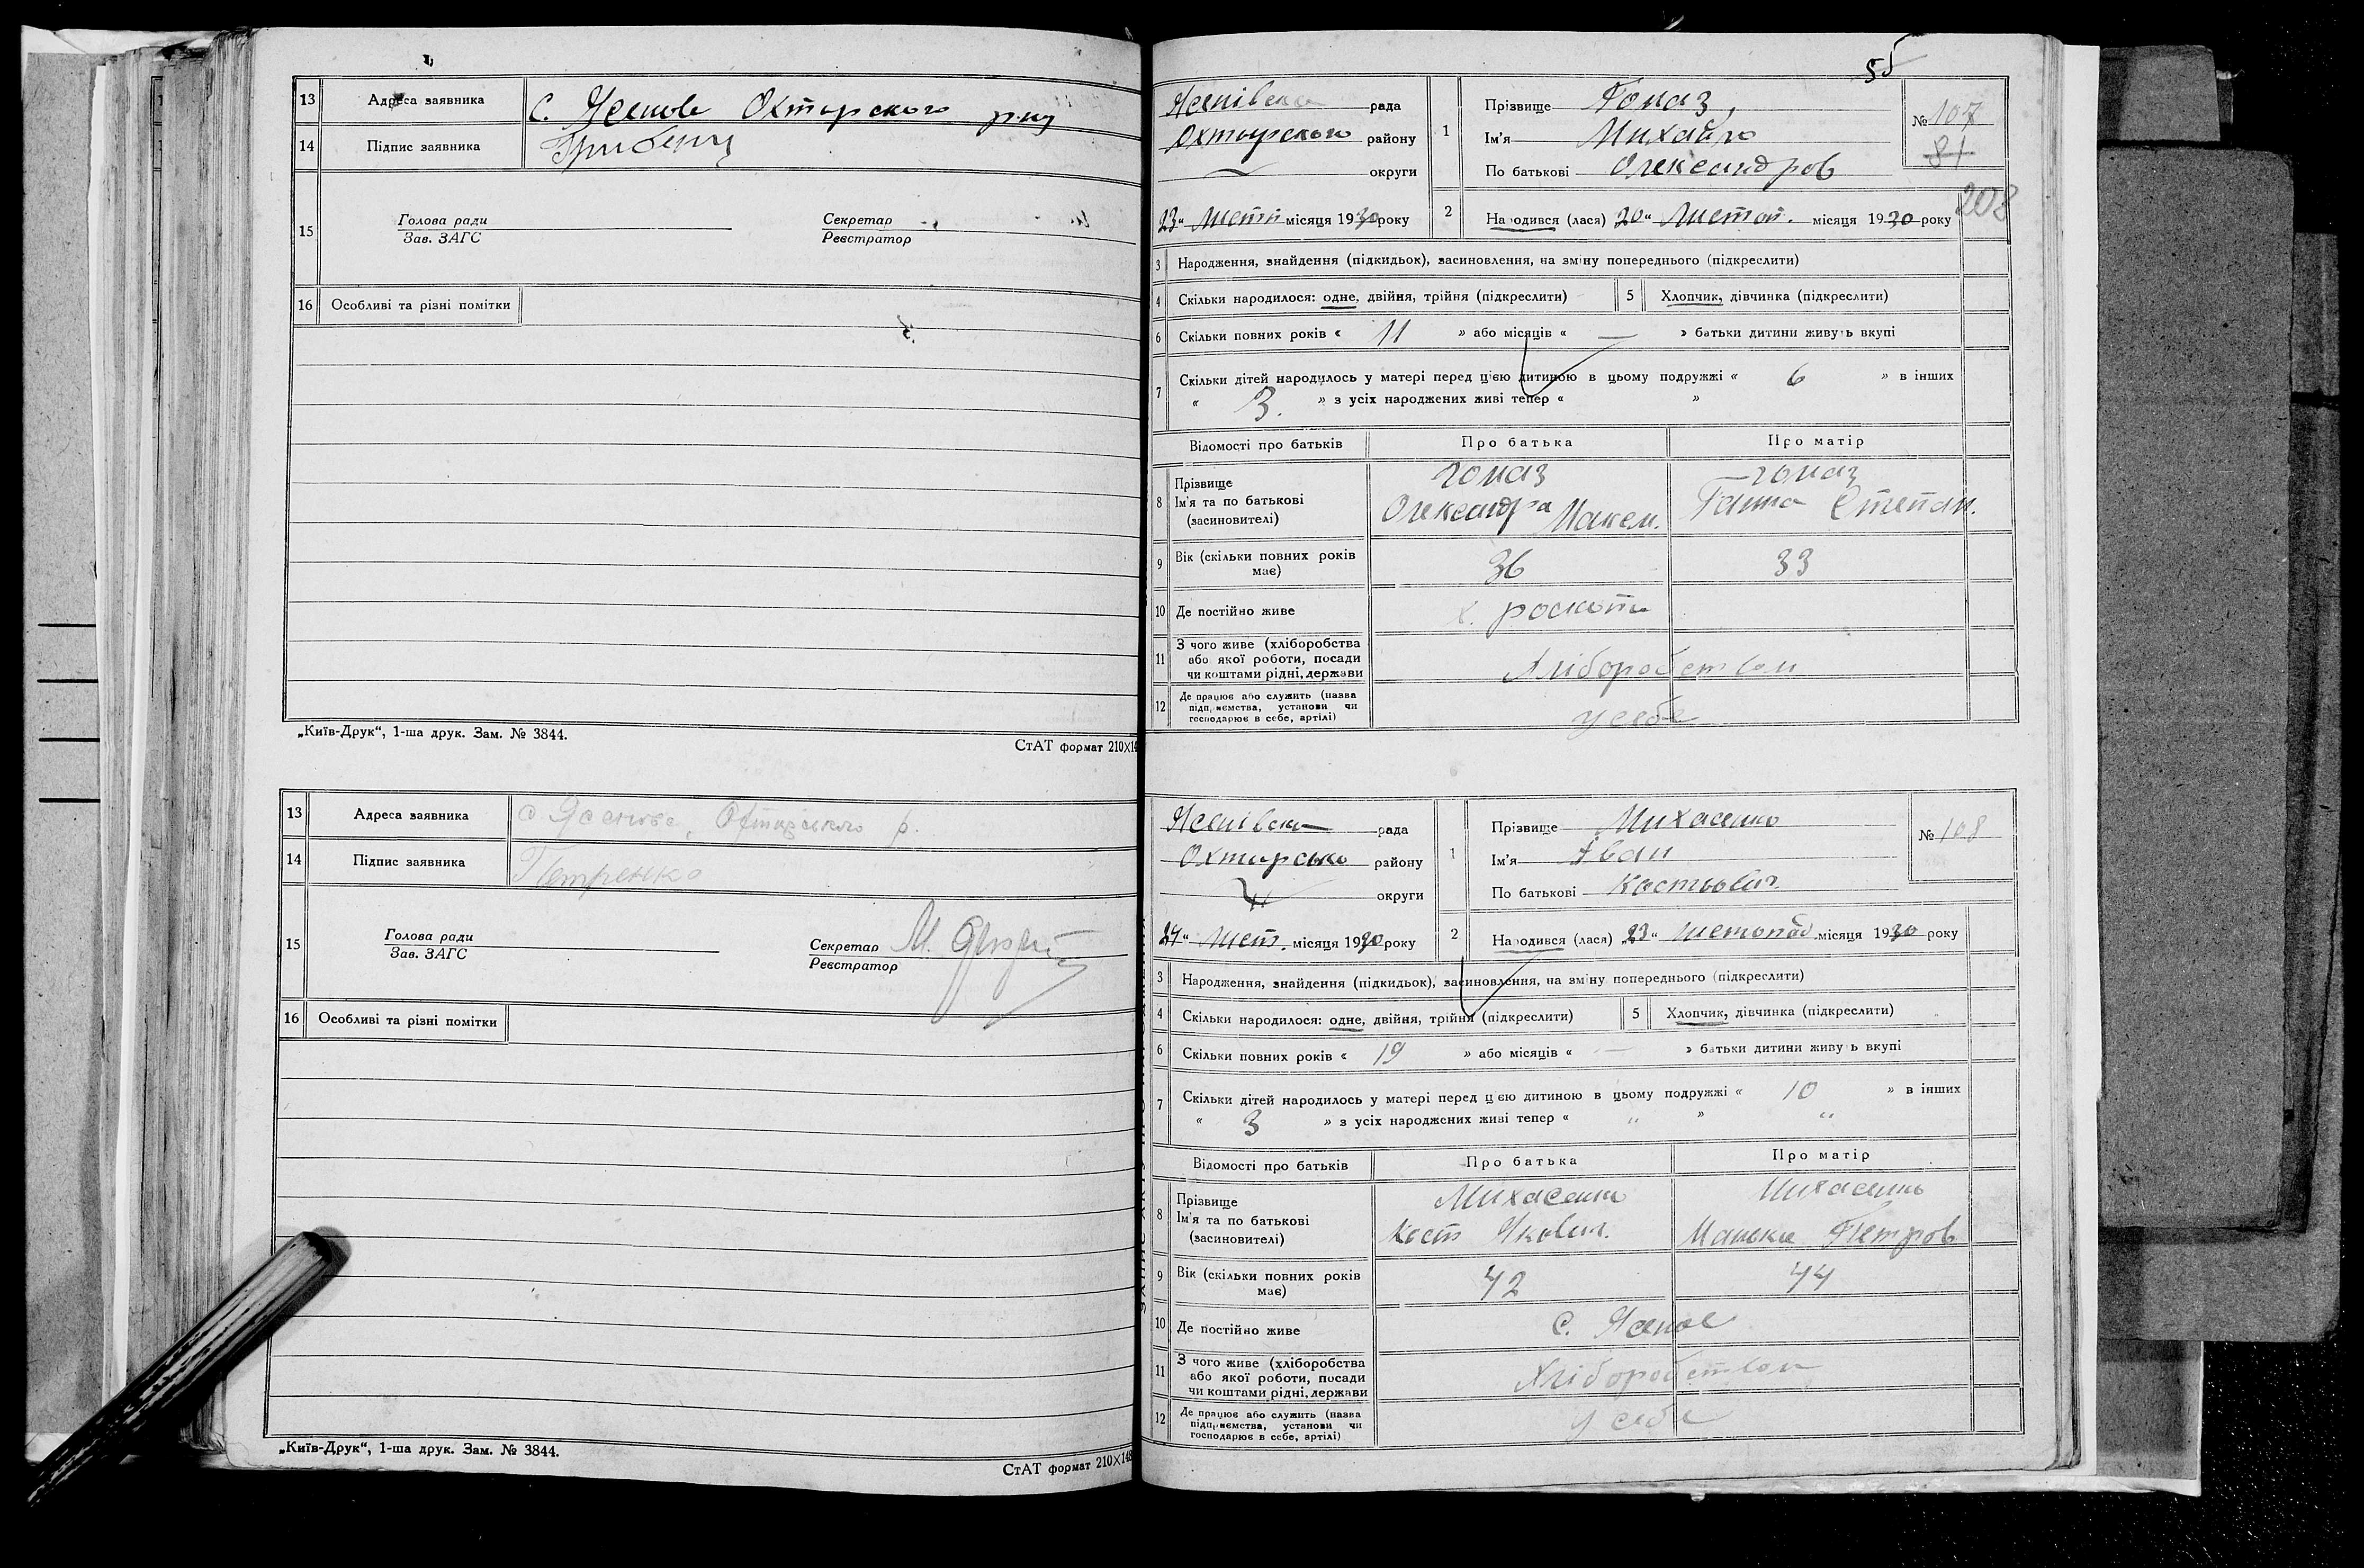 13 Адреса заявника с. Ясенове Охтирского р-ну
14 Підпис заявника
15 Голова ради Секретар
Зав. ЗАГС Реєстратор
16 Особливі та різні помітки
„Київ-Друк“, 1-ша друк. Зам. № 3844.
СтАТ формат 210×14
13 Адреса заявника с Ясенове, Охтирського р.
14 Підпис заявника Петренко
15 Голова ради Секретар М.
Зав. ЗАГС Реєстратор
16 Особливі та різні помітки
„Київ-Друк“, 1-ша друк. Зам. № 3844.
СтАТ формат 210×148
55
рада
Охтирського району
округи
1 Прізвище Гомаз
Ім'я Михайло
По батькові Олександров
№ 107
81
208
23 “ Листп місяця 1930 року
2 Народився (лася) 20 “ Листоп. місяця 1930 року
3 Народження, знайдення (підкидьок), засиновлення, на зміну попереднього (підкреслити)
4 Скільки народилося: одне, двійня, трійня (підкреслити) 5 Хлопчик, дівчинка (підкреслити)
6 Скільки повних років « 11 » або місяців « — » батьки дитини живуть вкупі
7 Скільки дітей народилось у матері перед цією дитиною в цьому подружжі « 6 » в інших
« 3. » з усіх народжених живі тепер « »
Відомості про батьків Про батька Про матір
8 Прізвище Гомаз Гомаз
Ім'я та по батькові Олександра Максим. Ганна Степан.
(засновителі)
9 Вік (скільки повних років має) 36 33
10 Де постійно живе х.
11 З чого живе (хліборобства
або якої роботи, посади
чи коштами рідні, держави Хліборобством
12 Де працює або служить (назва
підприємства, установи чи
господарює в себе, артілі) у себе
рада
Охтирсько району
округи
1 Прізвище Михасенко
Ім'я Іван
По батькові Костьович
№ 108
24 “ Лист. місяця 1930 року
2 Народився (лася) „23 “ листопад місяця 1930 року
3 Народження, знайдення (підкидьок), засиновлення, на зміну попереднього (підкреслити)
4 Скільки народилося: одне, двійня, трійня (підкреслити) 5 Хлопчик, дівчинка (підкреслити)
6 Скільки повних років « 19 » або місяців « — » батьки дитини живуть вкупі
7 Скільки дітей народилось у матері перед цією дитиною в цьому подружжі « 10 » в інших
« 3 » з усіх народжених живі тепер « „ » „
Відомості про батьків Про батька Про матір
8 Прізвище Михасенко Михасенко
Ім'я та по батькові Кость Якович. Петров
(засиновителі)
9 Вік (скільки повних років має) 42 44
10 Де постійно живе с. Ясенове
11 З чого живе (хліборобства
або якої роботи, посади
чи коштами рідні, держави Хліборобством
12 Де працює або служить (назва
підприємства, установи чи
господарює в себе, артілі) у себе